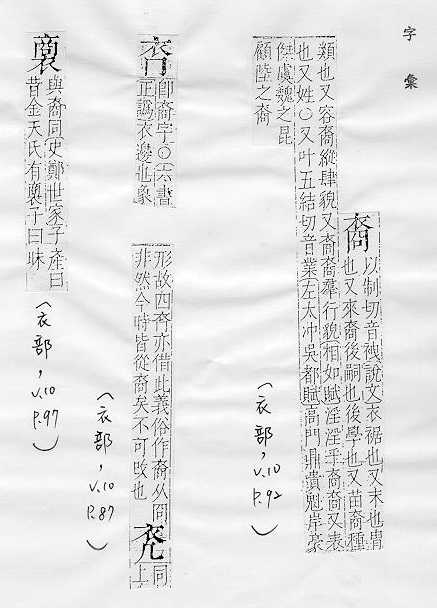 字彙
裔
以制切音袂說文衣裾也又末也胄
也又來裔後嗣也後學也又苗裔種
類也又容裔縱肆貌又裔裔羣行貌相如賦淫淫乎裔裔又表
也又姓○又叶五結切音業左太冲吳都賦高門鼎貴魁岸豪
傑虞魏之昆
顧陸之裔
(衣部, v.10 P.92)
卽裔字○六書
正譌衣邊也象
形故四裔亦借此義俗作裔从冏
非然今時皆從裔矣不可改也
同
上
(衣部, v.10 P.87)
與裔同史鄭世家子產曰
昔金天氏有子曰昧
(衣部, v.10 P.97)